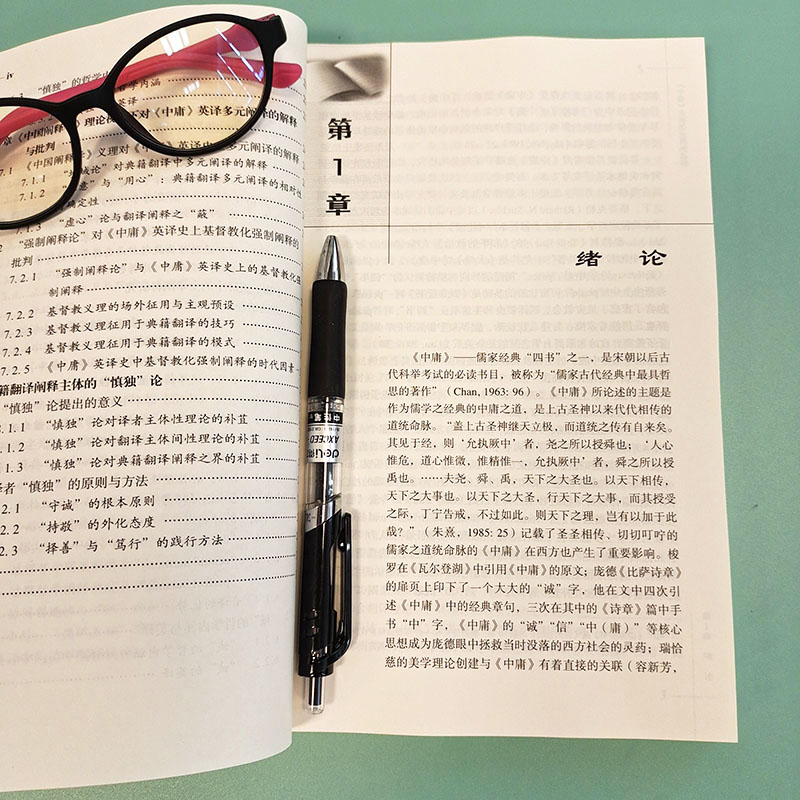 iv
“慎独”的哲学
学内涵
英译
章 《中国阐释
理论
下对《中庸》英译多元阐释的解释
与批判
7.1 《中国阐释
》义理对《中
英译中多元阐释的解释
7.1.1
域论”对典籍翻译中多元阐释的解释
7.1.2
意”与“用心”：典籍翻译多元阐释的相对性
确定性
7.1.3 “虚心”论与翻译阐释之“蔽”
2 “强制阐释论”对《中庸》英译史上基督教化强制阐释的
批判
7.2.1 “强制阐释论”与《中庸》英译史上的基督教化强
制阐释
7.2.2 基督教义理的场外征用与主观预设
7.2.3 基督教义理征用于典籍翻译的技巧
7.2.4 基督教义理征用于典籍翻译的模式
7.2.5 《中庸》英译史中基督教化强制阐释的时代因素
籍翻译阐释主体的“慎独”论
“慎独”论提出的意义
1.1 “慎独”论对译者主体性理论的补苴
1.2 “慎独”论对翻译主体间性理论的补苴
1.3 “慎独”论对典籍翻译阐释之界的补苴
译者“慎独”的原则与方法
2.1 “守诚”的根本原则
2.2 “持敬”的外化态度
2.3 “择善”与“笃行”的践行方法
第1章
绪 论
《中庸》——儒家经典“四书”之一，是宋朝以后古
代科举考试的必读书目，被称为“儒家古代经典中最具哲
思的著作”（Chan, 1963: 96）。《中庸》所论述的主题是
作为儒学之经典的中庸之道，是上古圣神以来代代相传的
道统命脉。“盖上古圣神继天立极，而道统之传有自来矣。
其见于经，则‘允执厥中’者，尧之所以授舜也；‘人心
惟危，道心惟微，惟精惟一，允执厥中’者，舜之所以授
禹也。……夫尧、舜、禹，天下之大圣也。以天下相传，
天下之大事也。以天下之大圣，行天下之大事，而其授受
之际，丁宁告戒，不过如此。则天下之理，岂有以加于此
哉？”（朱熹，1985: 25）记载了圣圣相传、切切叮咛的
儒家之道统命脉的《中庸》在西方也产生了重要影响。梭
罗在《瓦尔登湖》中引用《中庸》的原文；庞德《比萨诗章》
的扉页上印下了一个大大的“诚”字，他在文中四次引
述《中庸》中的经典章句，三次在其中的《诗章》篇中手
书“中”字，《中庸》的“诚”“信”“中（庸）”等核心
思想成为庞德眼中拯救当时没落的西方社会的灵药；瑞恰
慈的美学理论创建与《中庸》有着直接的关联（容新芳，
deli
AXCEED